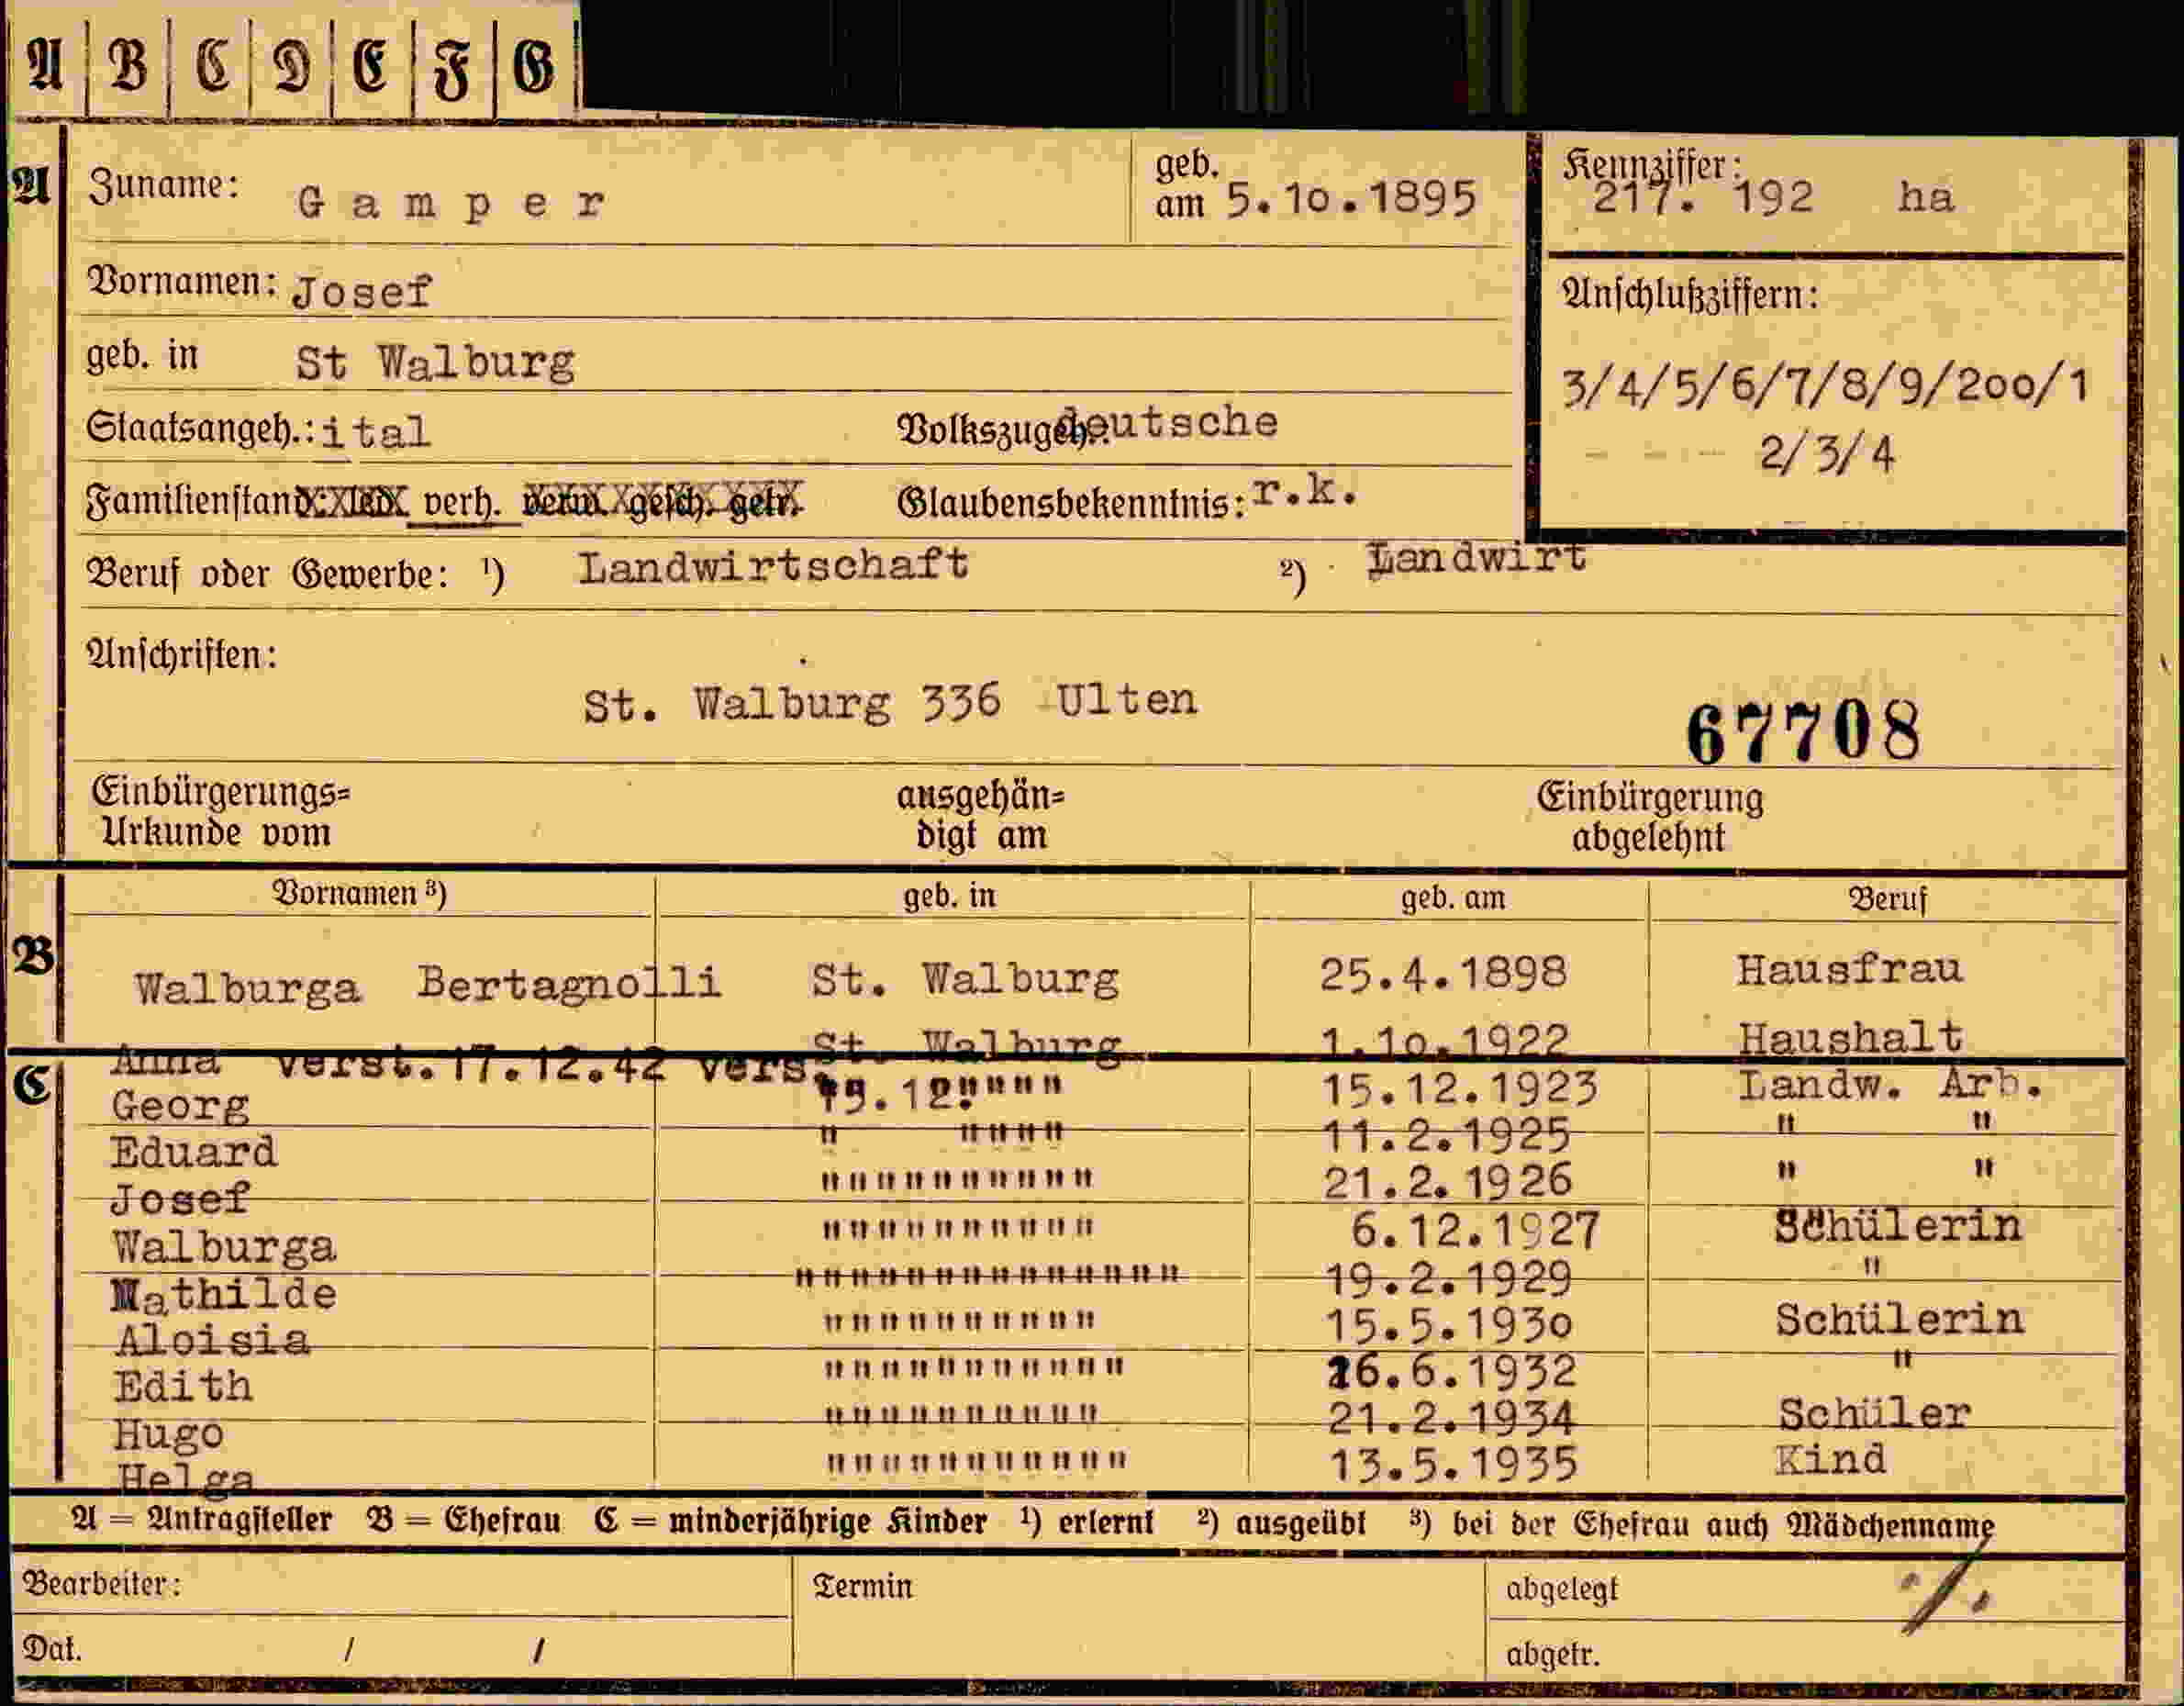 A B C D E F G
A Zuname: Gamper geb. am 5.10.1895 Kennziffer: 217. 192 ha
Vornamen: Josef
Anschlußziffern:
geb. in St Walburg
3/4/5/6/7/8/9/200/1
Staatsangeh.: ital Volkszugeh. deutsche
- - - 2/3/4
Familienstand: led. verh. verw. gesch. getr. Glaubensbekenntnis: r.k.
Beruf oder Gewerbe: ¹) Landwirtschaft ²) Landwirt
Anschriften:
St. Walburg 336 Ulten
67708
Einbürgerungs= ausgehän= Einbürgerung
Urkunde vom digt am abgelehnt
Vornamen ³) geb. in geb. am Beruf
B Walburga Bertagnolli St. Walburg 25.4.1898 Hausfrau
C Anna verst. 17.12.42 vers. St. Walburg 1.10.1922 Haushalt
Georg 19.12. """" 15.12.1923 Landw. Arb.
Eduard " """" 11.2.1925 " "
Josef """""""""" 21.2.1926 " "
Walburga """""""""" 6.12.1927 Schülerin
Mathilde """""""""""""" 19.2.1929 "
Aloisia """""""""" 15.5.1930 Schülerin
Edith """"""""""" 26.6.1932 "
Hugo """""""""" 21.2.1934 Schüler
Helga """"""""""" 13.5.1935 Kind
A = Antragsteller B = Ehefrau C = minderjährige Kinder ¹) erlernt ²) ausgeübt ³) bei der Ehefrau auch Mädchenname
Bearbeiter: Termin abgelegt ./.
Dat. / / abgetr.